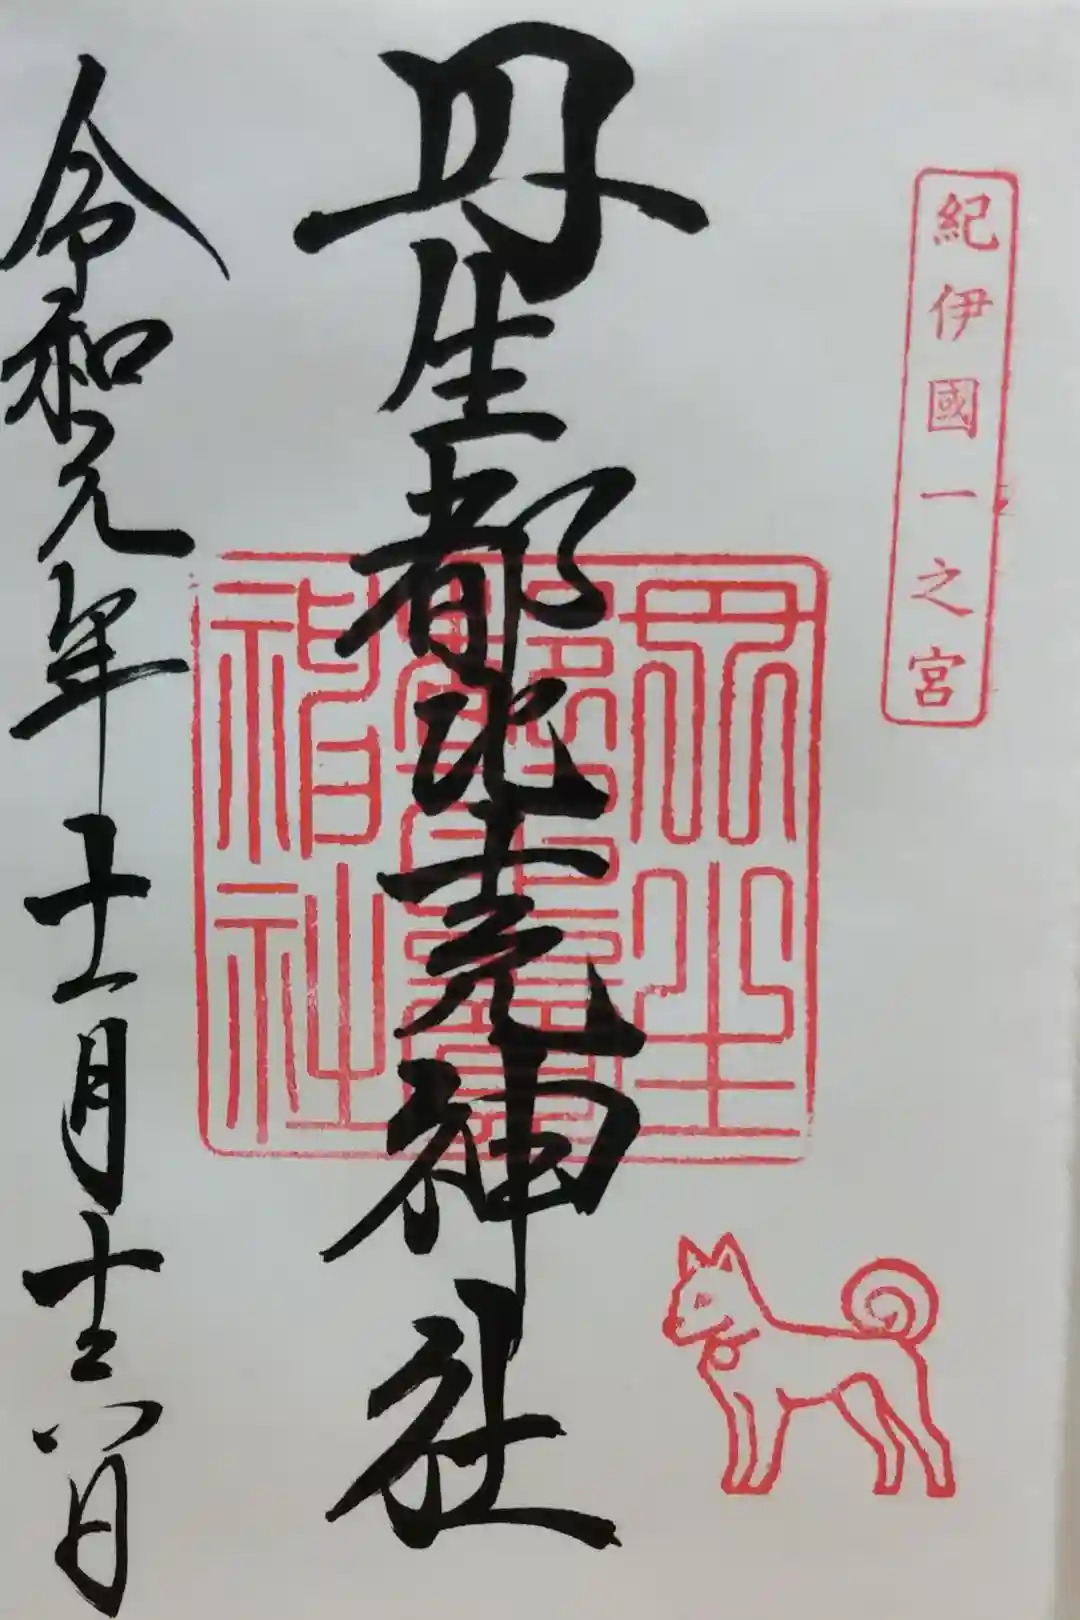 紀伊國一之宮
丹生都比売神社
令和元年十一月十六日
丹生
神社